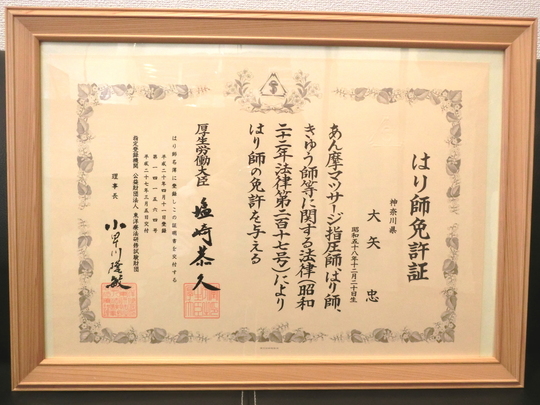 はり師免許証
神奈川県
大矢 忠
昭和五十八年十二月二十日生
あん摩マツサージ指圧師、はり師、
きゆう師等に関する法律(昭和
二十二年法律第二百十七号)により
はり師の免許を与える
厚生労働大臣 塩崎恭久
はり師名簿に登録しこの証明書を交付する
平成二十年四月十日登録
平成二十七年三月五日交付
指定登録機関 公益財団法人 東洋療法研修試験財団
理事長 小早川隆敏